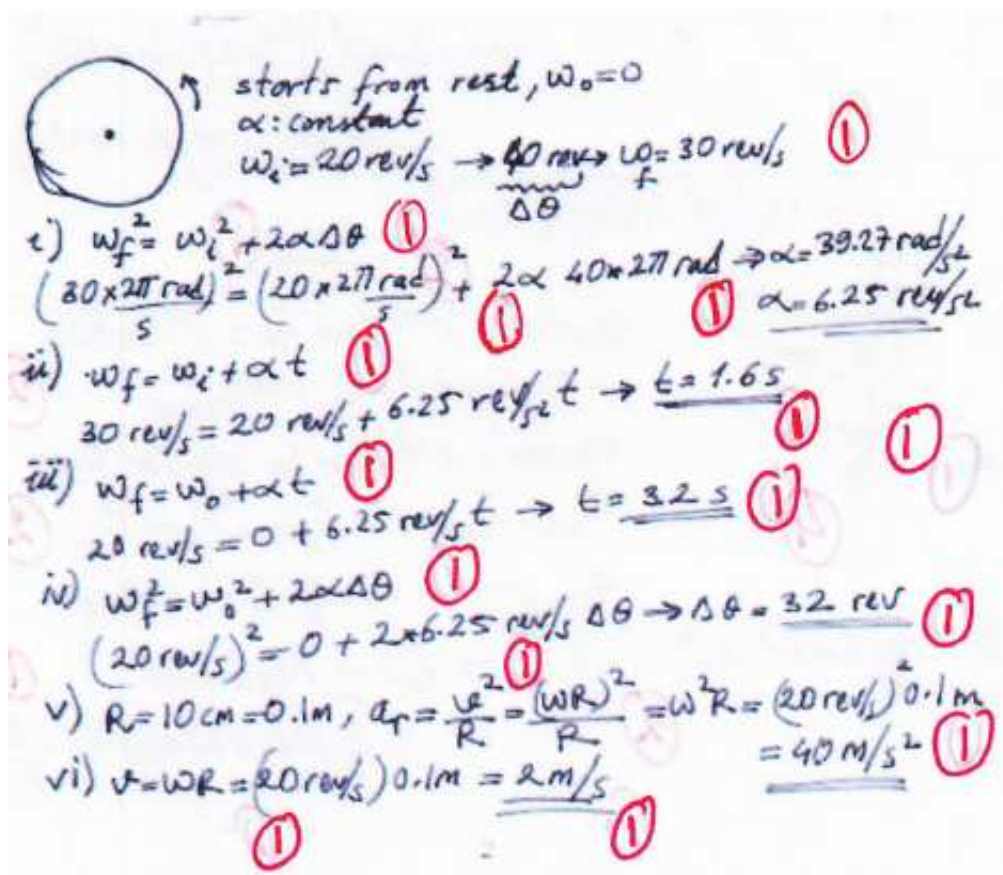 starts from rest, ω₀=0
α: constant
ωᵢ = 20 rev/s → 40 rev → ω_f = 30 rev/s ①
Δθ
i) ω_f² = ωᵢ² + 2αΔθ ①
(30×2π rad/s)² = (20×2π rad/s)² + 2α 40×2π rad ⇒ α = 39.27 rad/s²
① ① α = 6.25 rev/s²
ii) ω_f = ωᵢ + αt ①
30 rev/s = 20 rev/s + 6.25 rev/s² t → t = 1.6 s ① ①
iii) ω_f = ω₀ + αt ①
20 rev/s = 0 + 6.25 rev/s t → t = 3.2 s ①
iv) ω_f² = ω₀² + 2αΔθ ①
(20 rev/s)² = 0 + 2×6.25 rev/s Δθ → Δθ = 32 rev ①
v) R = 10 cm = 0.1m, a_r = v²/R = (ωR)²/R = ω²R = (20 rev/s)² 0.1 m ①
= 40 m/s² ①
vi) v = ωR = (20 rev/s) 0.1m = 2 m/s
① ①
2